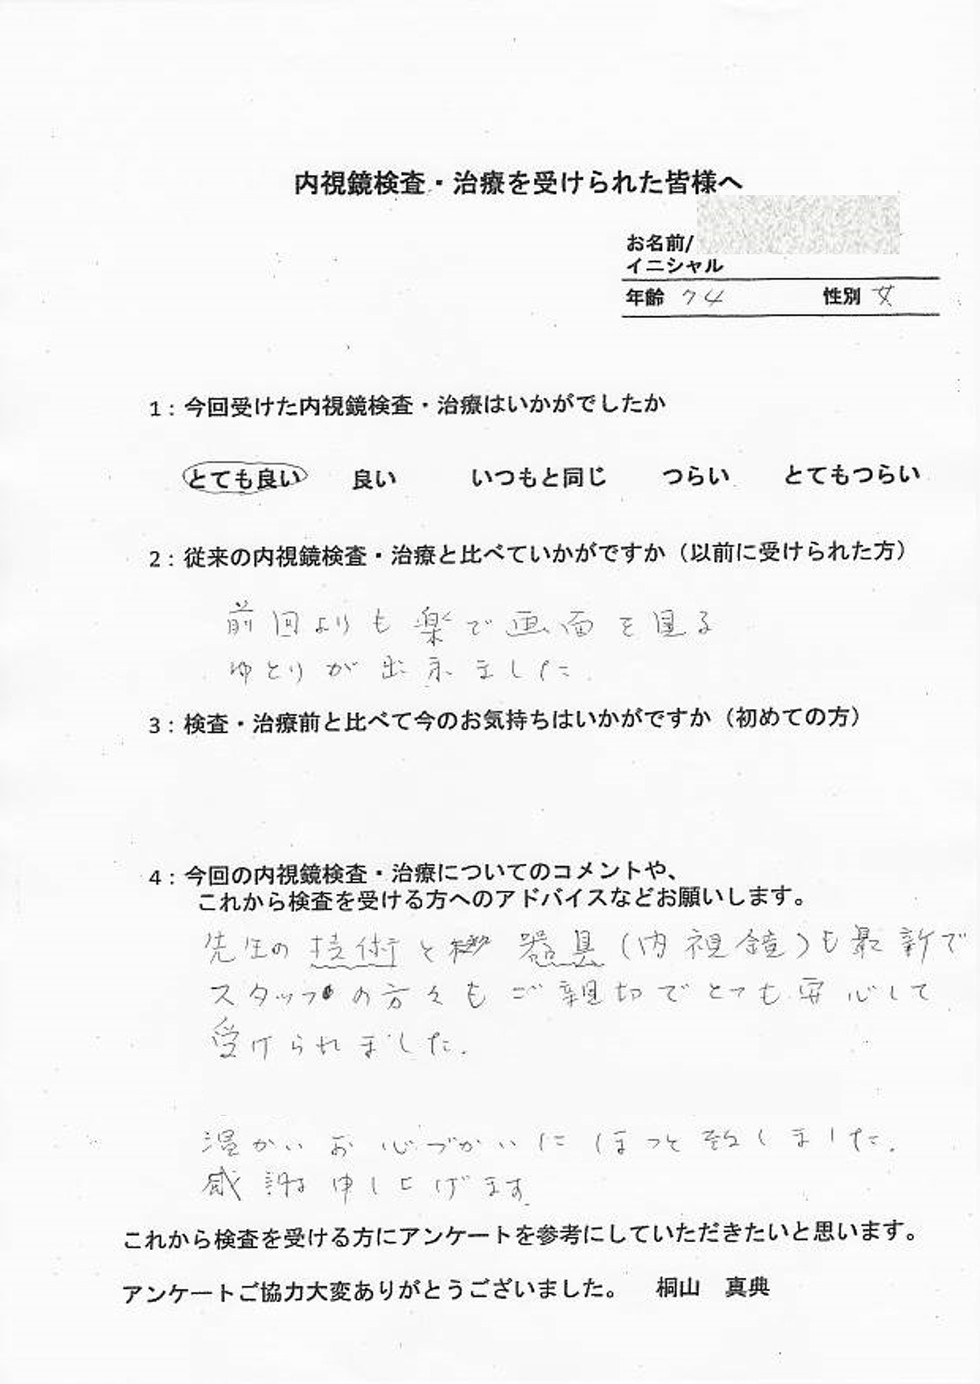 内視鏡検査・治療を受けられた皆様へ
お名前/
イニシャル
年齢 74 性別 女
1：今回受けた内視鏡検査・治療はいかがでしたか
とても良い 良い いつもと同じ つらい とてもつらい
2：従来の内視鏡検査・治療と比べていかがですか（以前に受けられた方）
前回よりも楽で画面を見る
ゆとりが出来ました.
3：検査・治療前と比べて今のお気持ちはいかがですか（初めての方）
4：今回の内視鏡検査・治療についてのコメントや、
これから検査を受ける方へのアドバイスなどお願いします。
先生の技術と器具(内視鏡)も最新で
スタッフの方々もご親切でとても安心して
受けられました.
温かいお心づかいにほっと致しました.
感謝申し上げます.
これから検査を受ける方にアンケートを参考にしていただきたいと思います。
アンケートご協力大変ありがとうございました。 桐山 真典